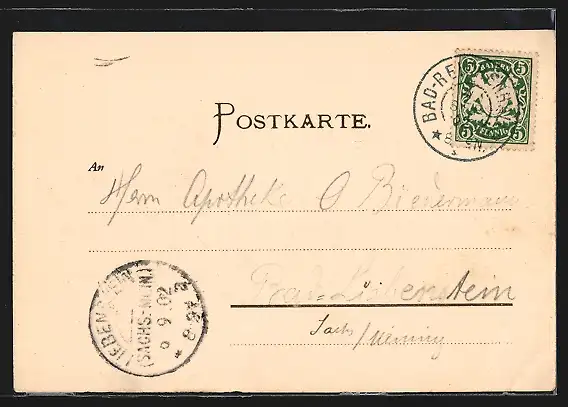 BAD-RE
BAYERN
5 5
5 PFENNIG 5
POSTKARTE.
An
Herrn Apotheke O Biedermann
Bad-Liebenstein
Sachs/Meining
LIEBENSTEIN
(SACHS.-MEIN.)
9 02